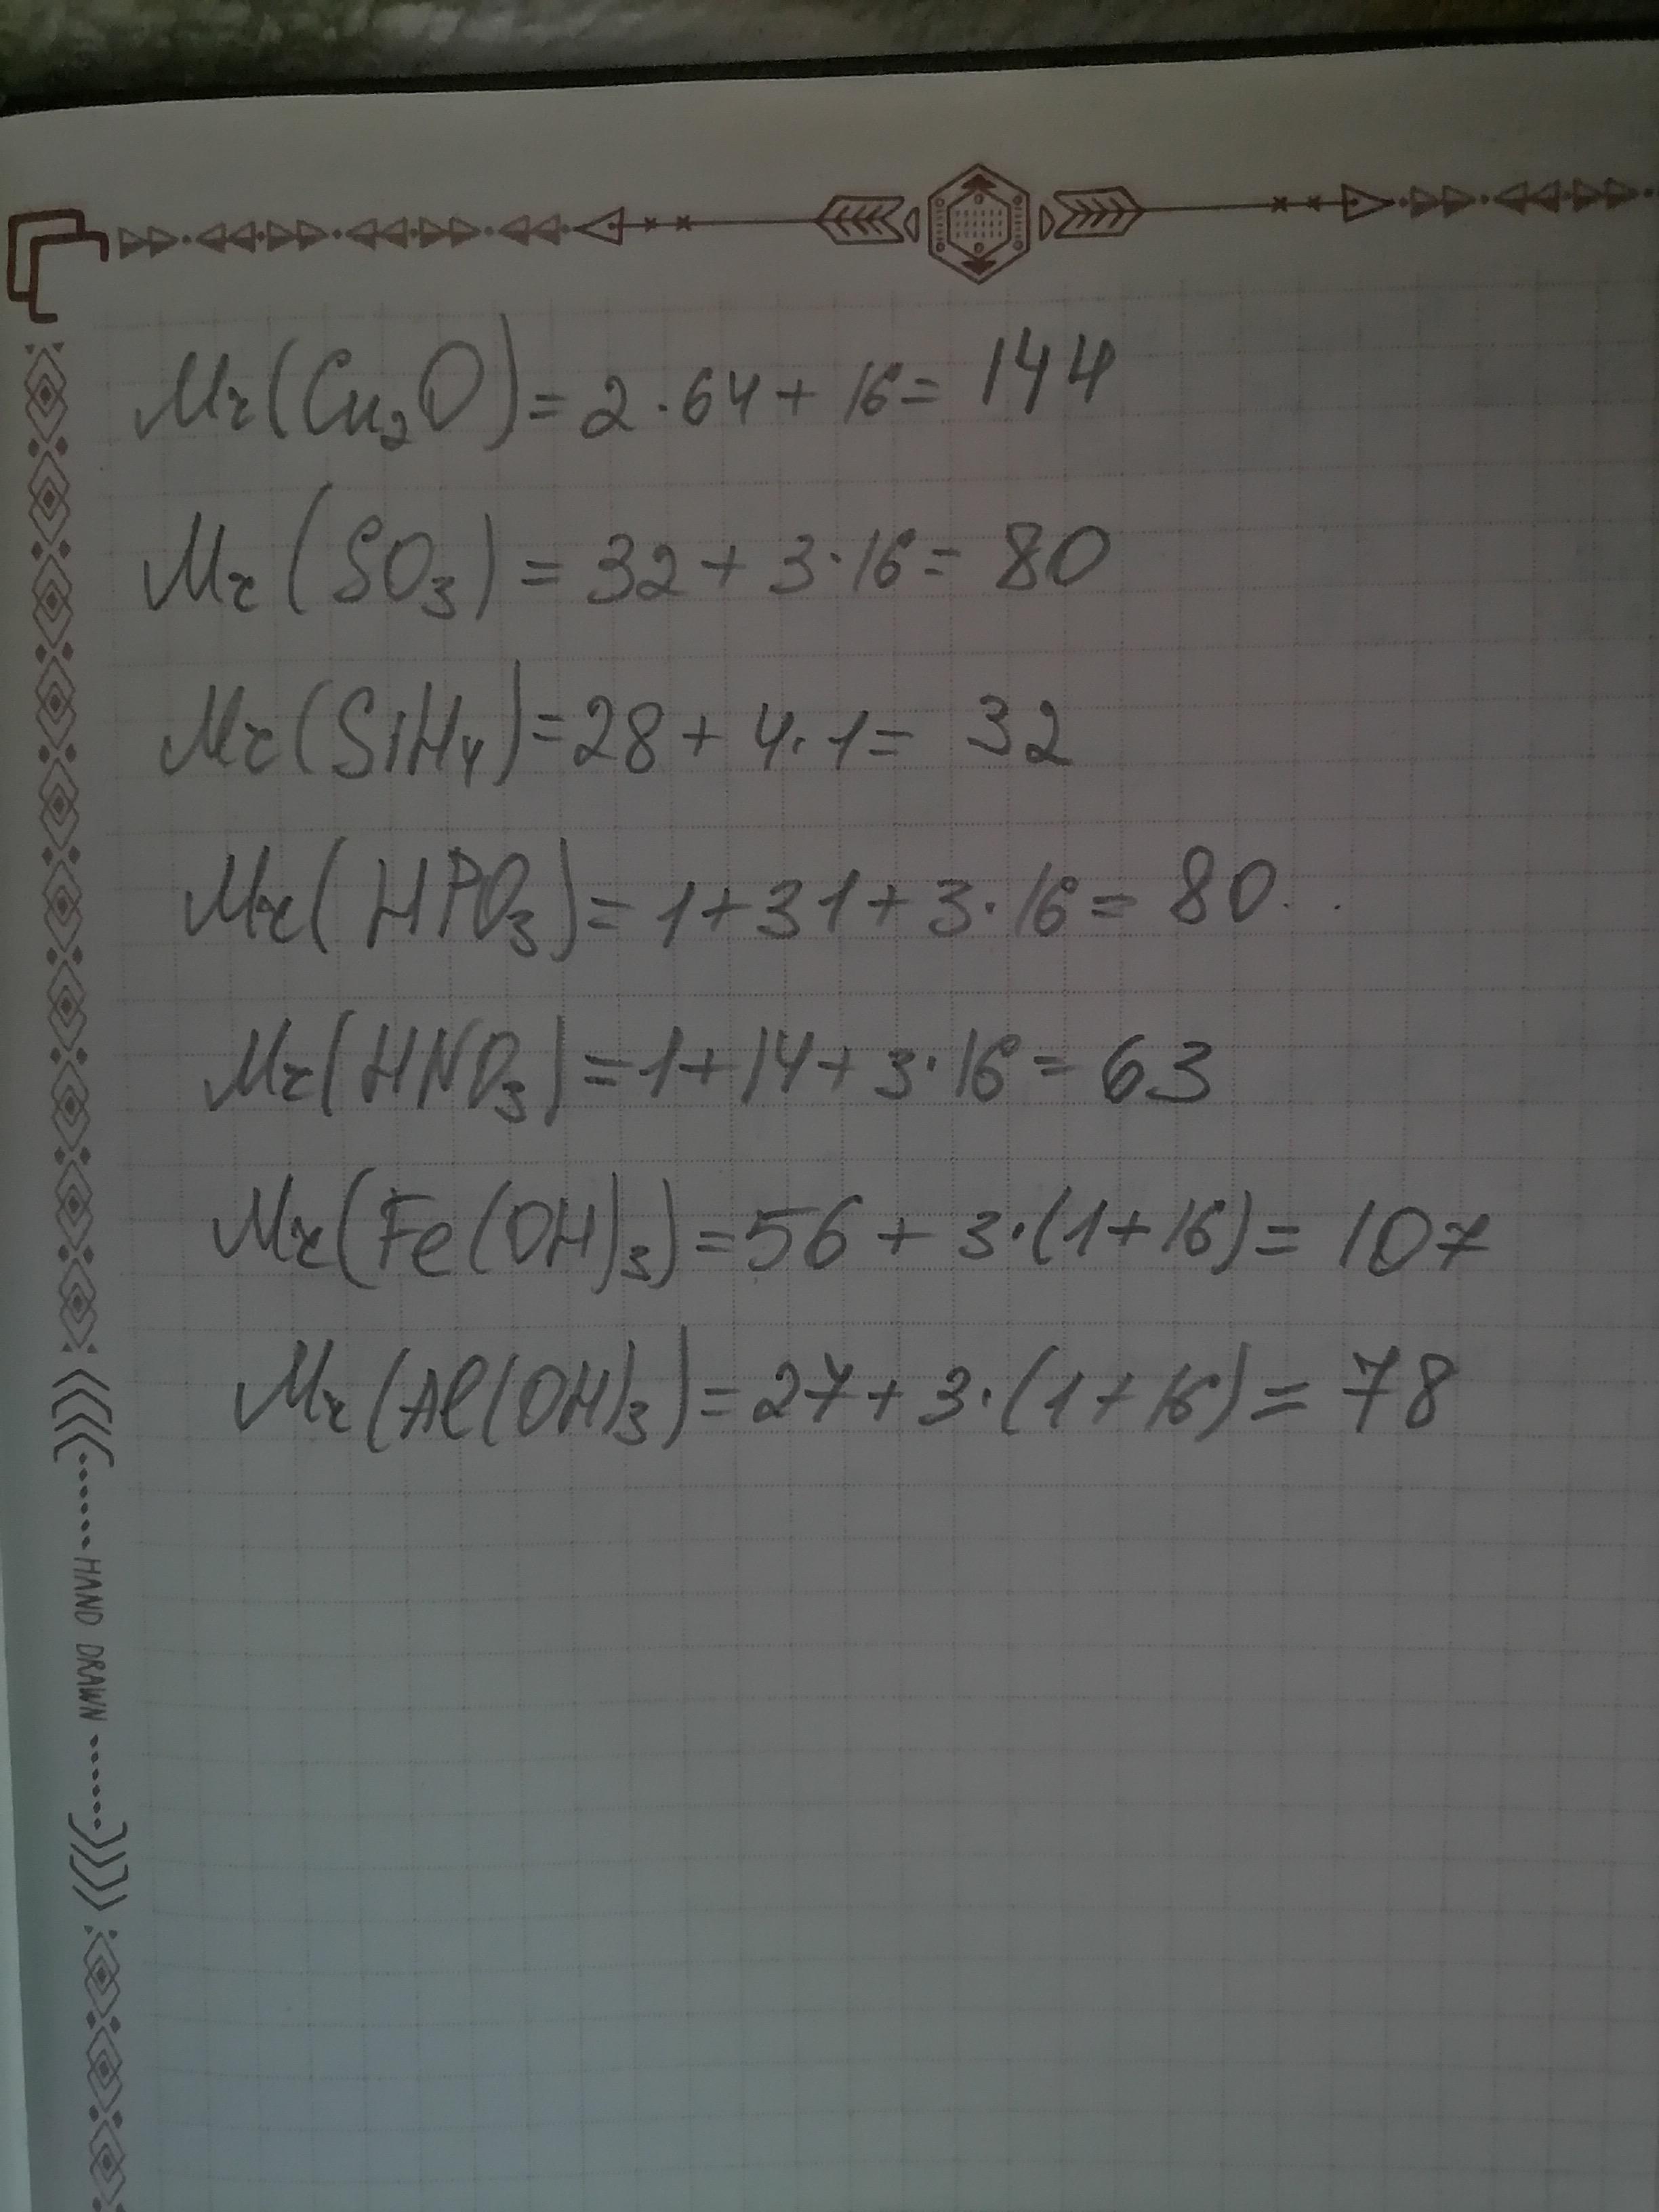 Mr(Cu₂O)= 2·64+ 16= 144
Mr(SO₃) = 32+ 3·16= 80
Mr(SiH₄)=28+ 4·1= 32
Mr(HPO₃)= 1+31+3·16= 80
Mr(HNO₃)=1+14+3·16= 63
Mr(Fe(OH)₃)=56+ 3·(1+16)= 107
Mr(Al(OH)₃)=27+3·(1+16)= 78
HAND DRAWN